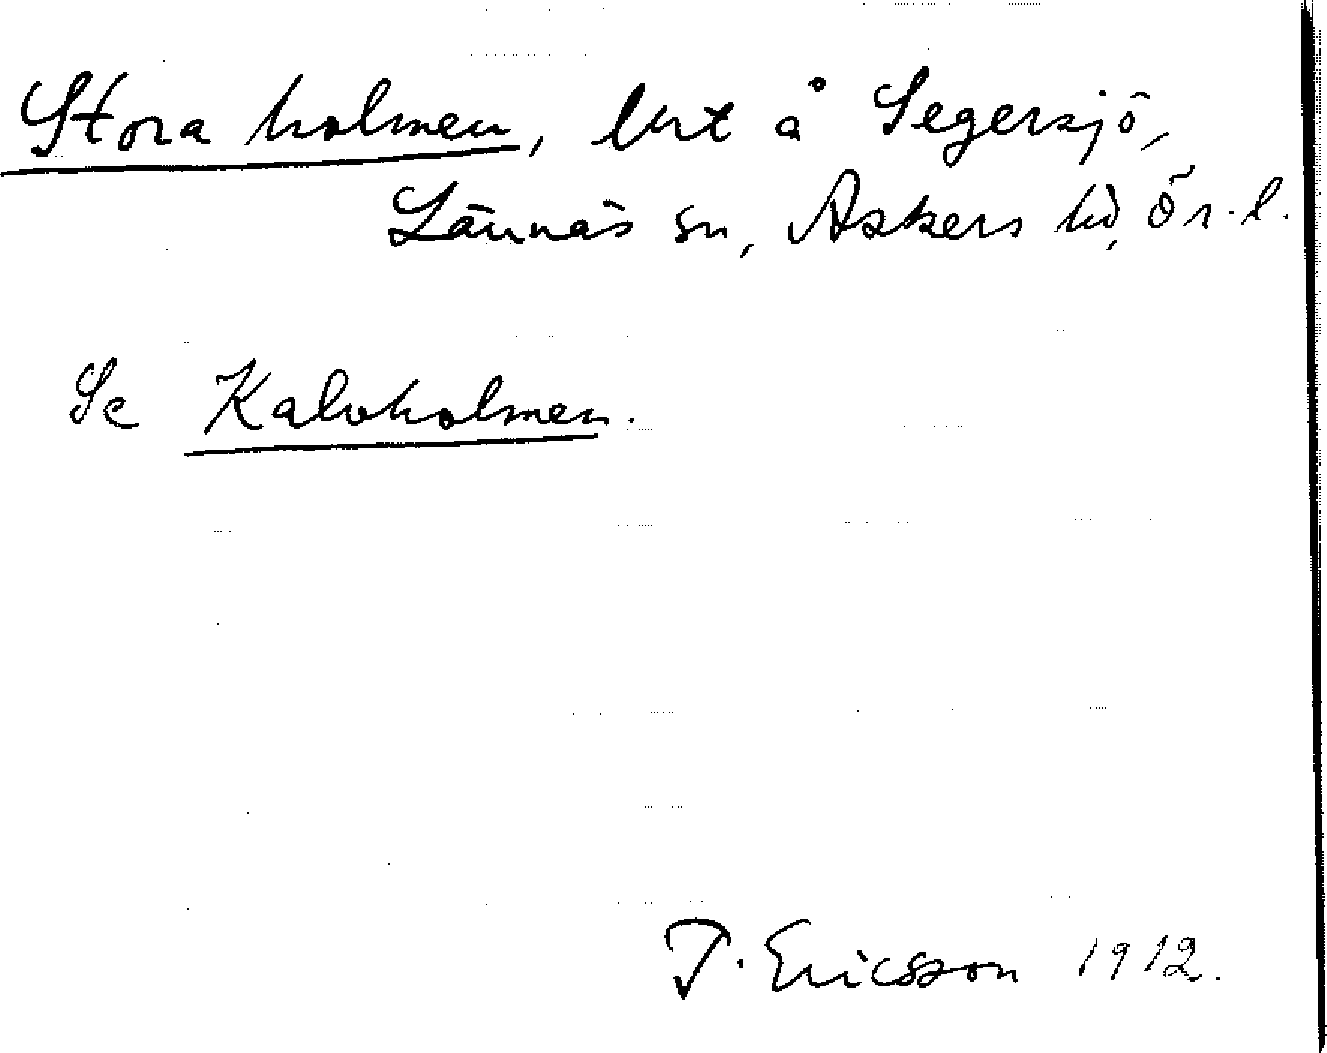 Stora holmen, lht å Segersjö,
Lännäs sn, Askers hd, Ör. l.
Se Kalvholmen.
J. Ericsson 1912.